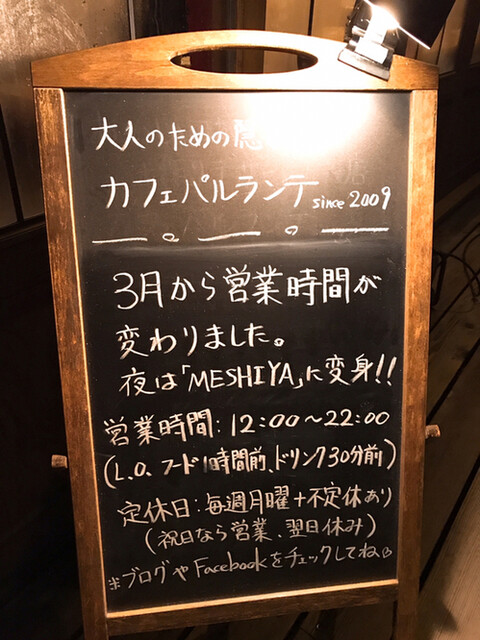 大人のための隠
カフェパルランテ since 2009
3月から営業時間が
変わりました。
夜は「MESHIYA」に変身!!
営業時間:12:00~22:00
(L.O. フード1時間前、ドリンク30分前)
定休日:毎週月曜+不定休あり
(祝日なら営業、翌日休み)
※ブログやFacebookをチェックしてね